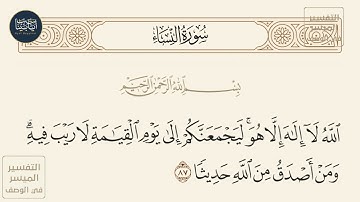 سُورَةُ النِّسَاءِ
بِسْمِ اللَّهِ الرَّحْمَٰنِ الرَّحِيمِ
ٱللَّهُ لَآ إِلَٰهَ إِلَّا هُوَۚ لَيَجْمَعَنَّكُمْ إِلَىٰ يَوْمِ ٱلْقِيَٰمَةِ لَا رَيْبَ فِيهِۗ
وَمَنْ أَصْدَقُ مِنَ ٱللَّهِ حَدِيثًا ٨٧
التفسير
الميسر
في الوصف
التفسير
الميسر
في الوصف